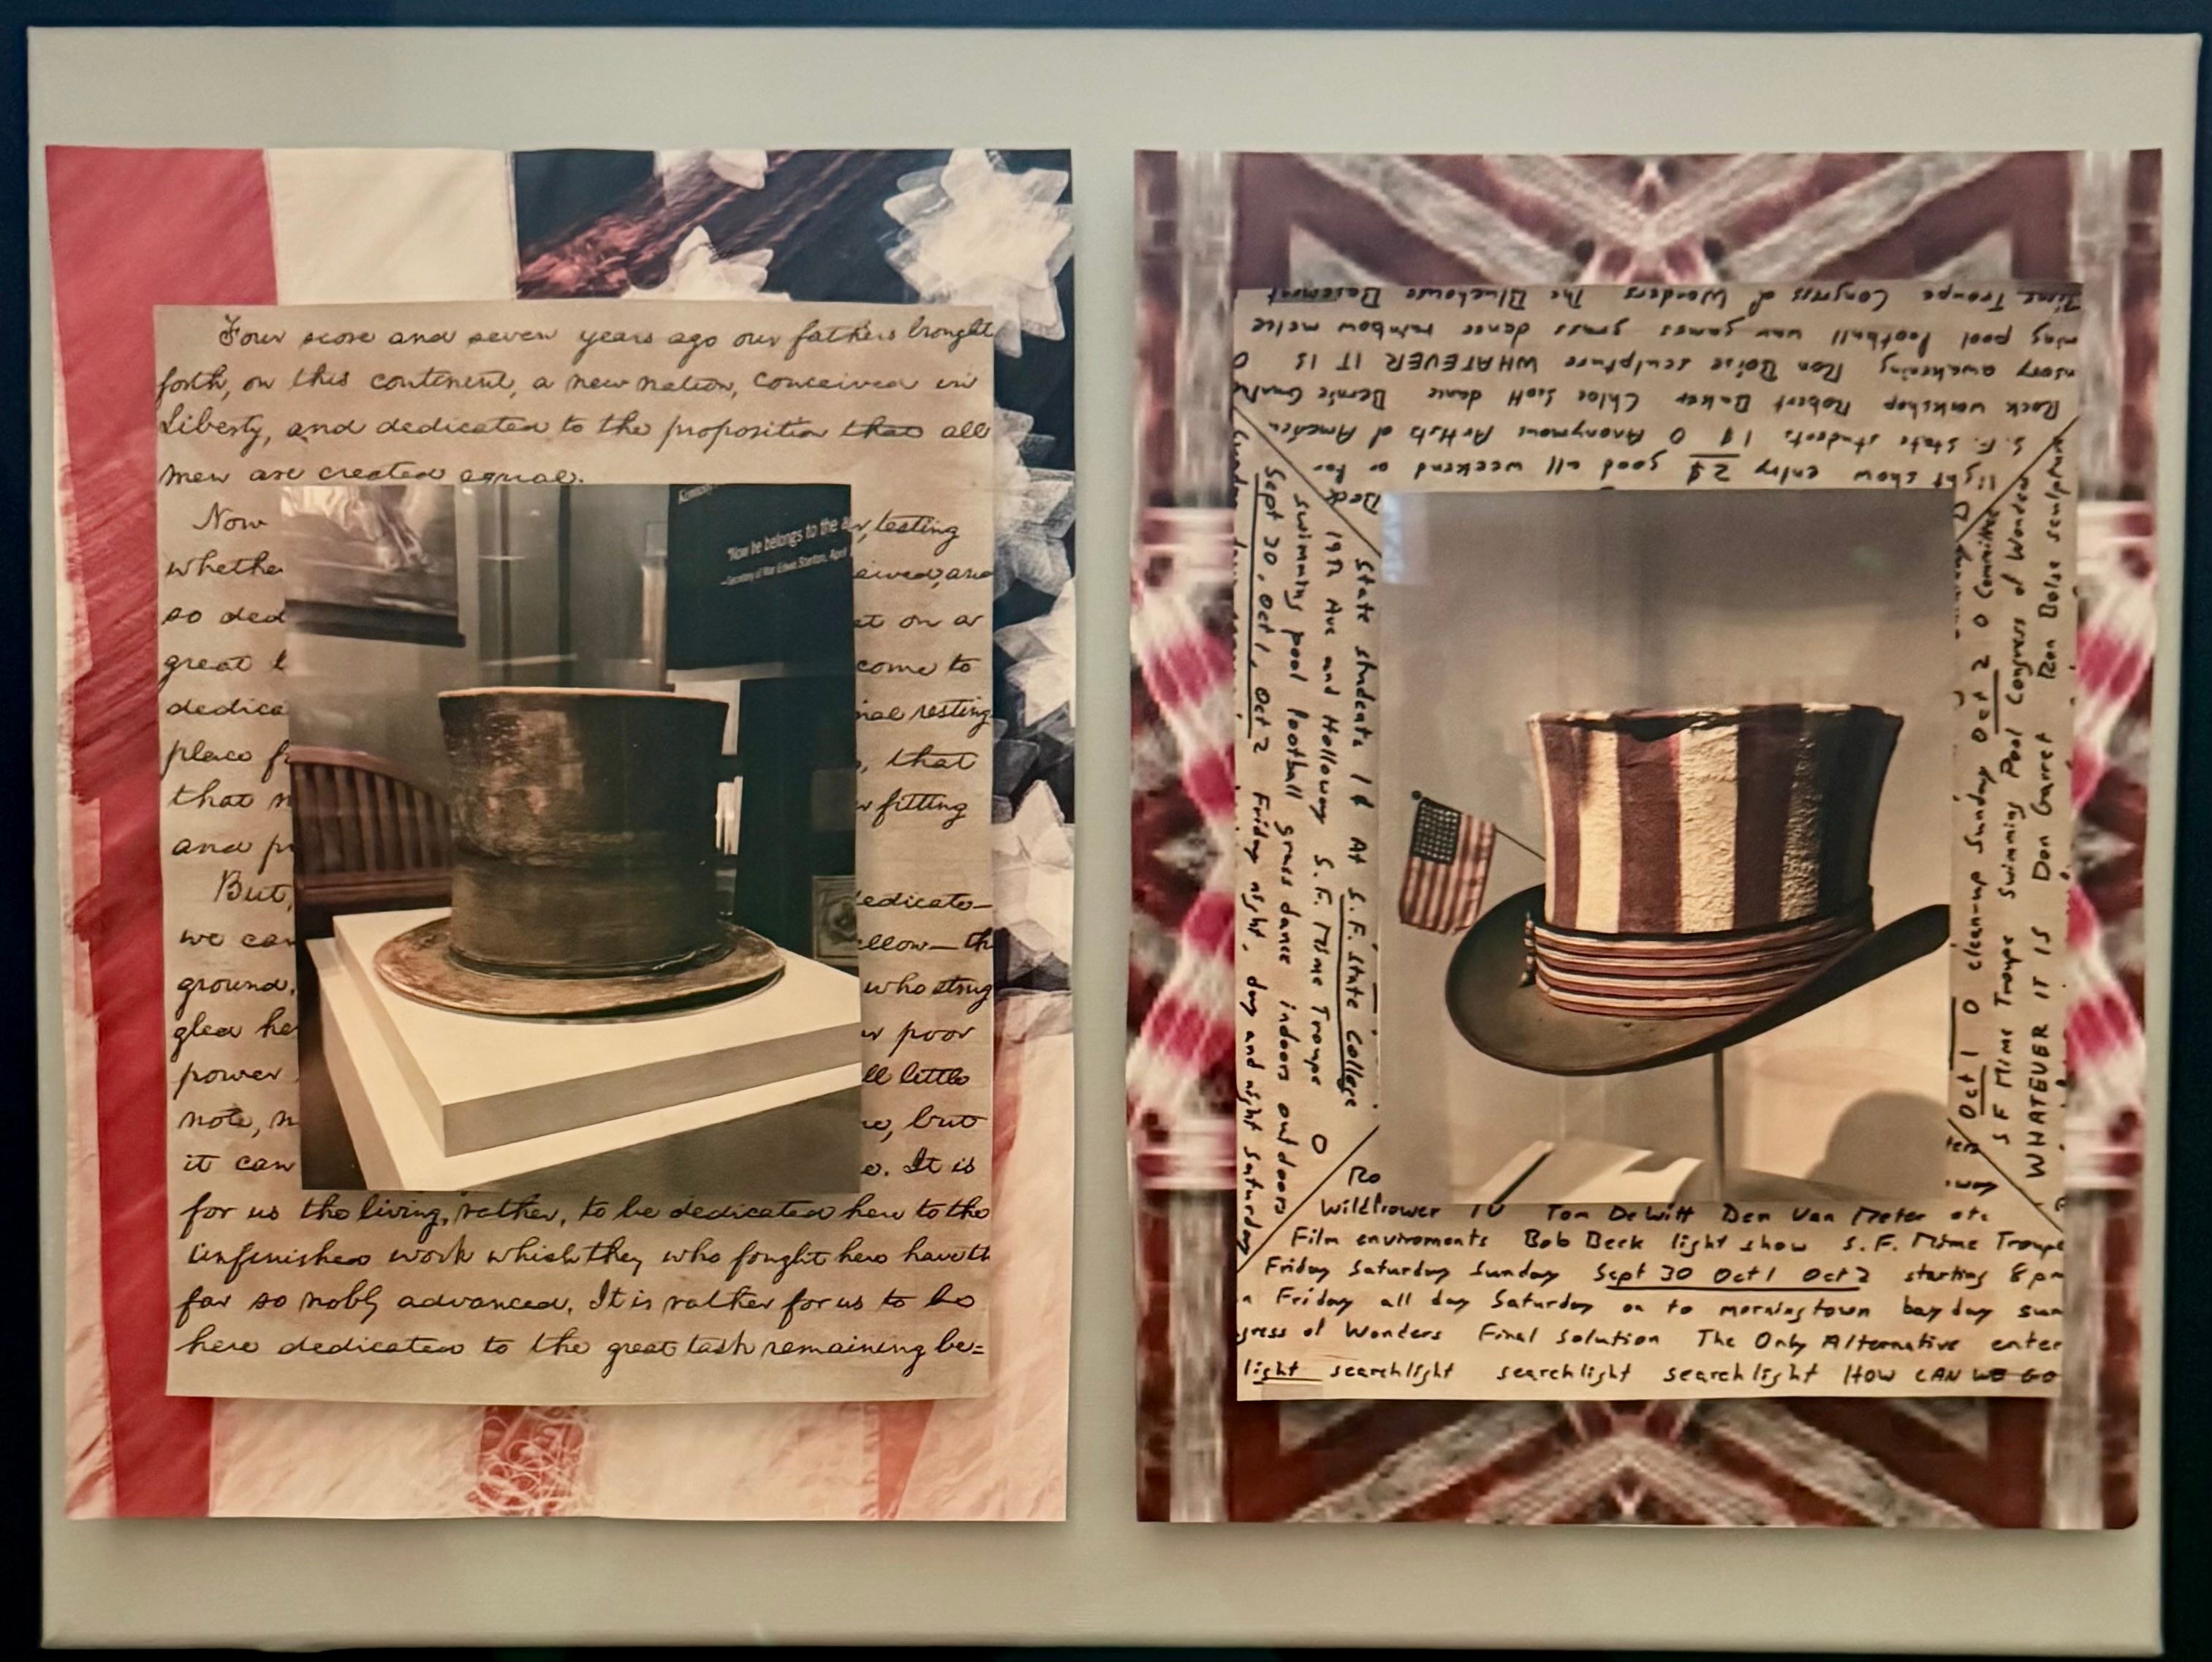 Four score and seven years ago our fathers brought
forth, on this continent, a new nation, conceived in
Liberty, and dedicated to the proposition that all
men are created equal.
Now testing
whethe eived, and
so ded et on a
great b come to
dedica nal resting
place f , that
that n fitting
and pr
But, edicate—
we can allow— th
ground, who strug
gled he poor
power ll little
note, n e, but
it can e. It is
for us the living, rather, to be dedicated here to the
unfinished work which they who fought here have th
far so nobly advanced. It is rather for us to be
here dedicated to the great task remaining be=
"Now he belongs to the a
—Secretary of War Edwin Stanton, April
Mime Troupe Congress of Wonders The Bluehouse Basement
ming pool football war games grass dance rainbow melee
nsory awakening Ron Boise sculpture WHATEVER IT IS O
Rock workshop Robert Baker Chloe Scott dance Bernie
S. F. State students 1$ O Anonymous Artists of America
light show entry 2$ good all weekend or for
Beck
State students 1$ At S.F. State College
19th Ave and Holloway S.F. Mime Troupe O
Swimming pool football grass dance indoors outdoors
Sept 30, Oct 1, Oct 2 Friday night, day and night Saturday
Sunday
Oct 1 O clean-up Sunday Oct 2 O Committe
SF Mime Troupe Swimming Pool Congress of Wonders
WHATEVER IT IS Don Garret Ron Boise sculpture
Ro
Wildflower TV Tom DeWitt Den Van Meter etc
Film enviroments Bob Beck light show S.F. Mime Troupe
Friday Saturday Sunday Sept 30 Oct 1 Oct 2 starting 8 pm
n Friday all day Saturday on to morningtown bay day sun
gress of Wonders Final Solution The Only Alternative enter
light searchlight searchlight searchlight HOW CAN WE GO